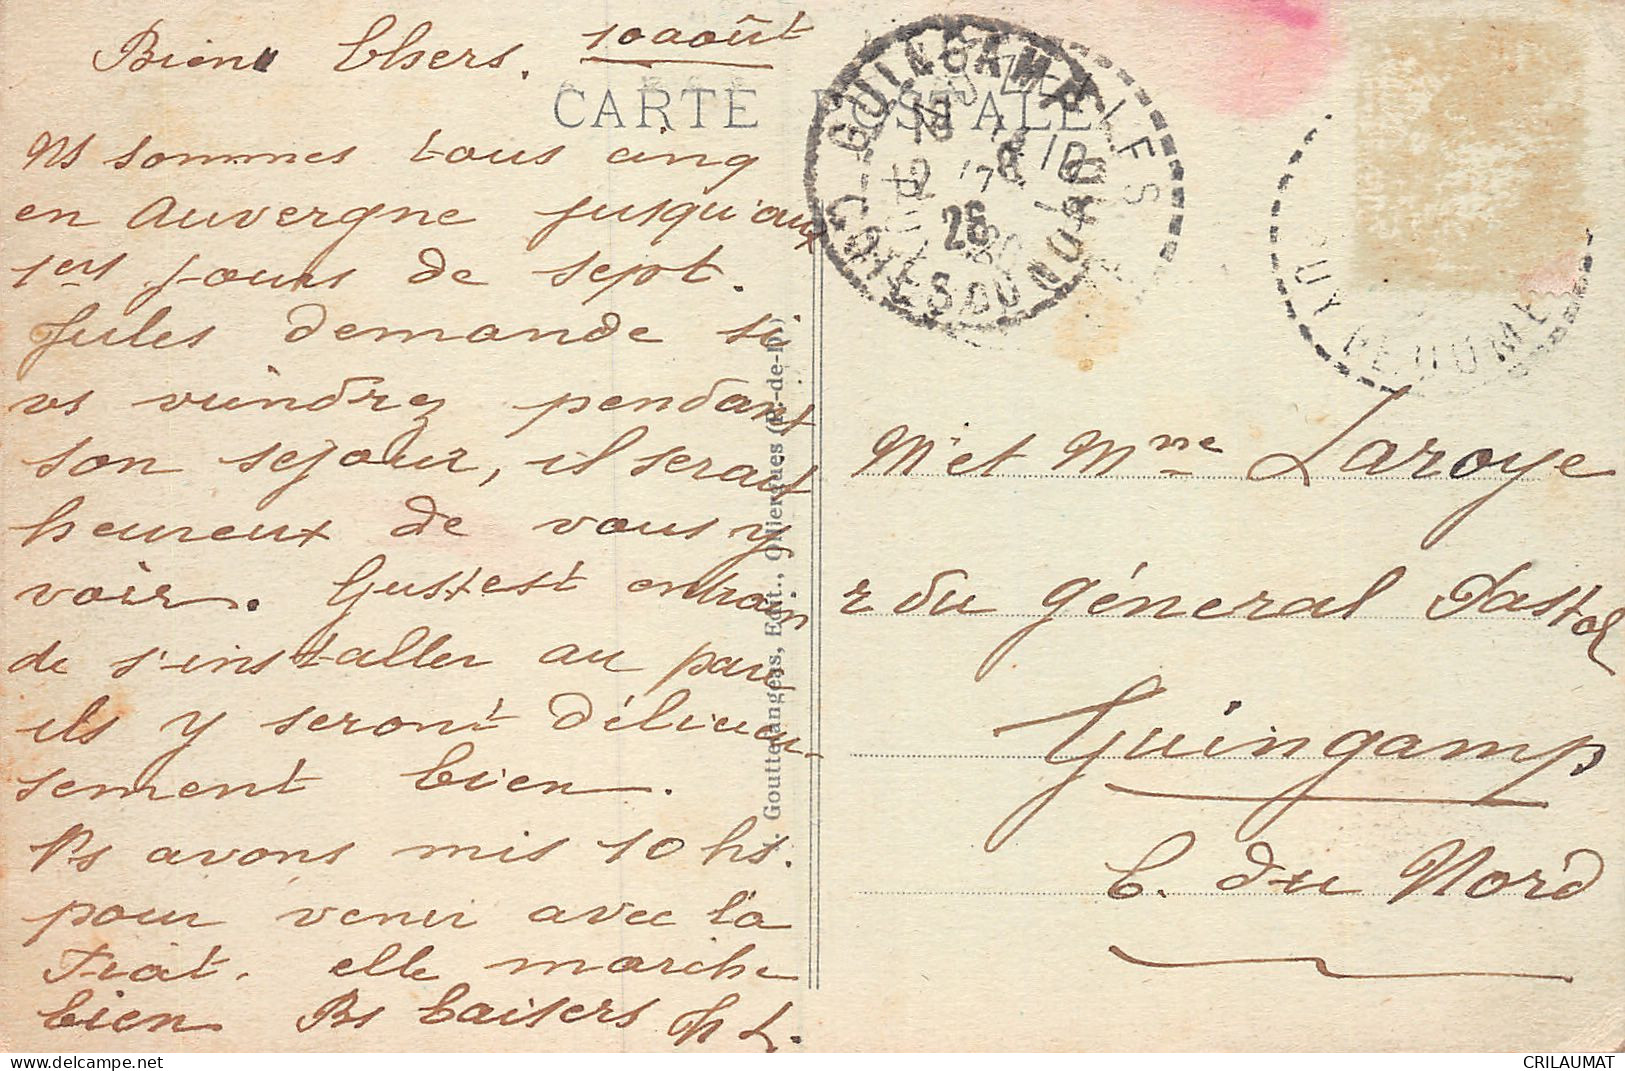 Bien Chers. 10 août
CARTE POSTALE
Ns sommes tous cinq
en Auvergne jusqu'aux
1ers jours de sept.
Jules demande si
vs viendrez pendant
son sejour, il serait
heureux de vous y
voir. Gust est entrain
de s'installer au parc
ils y seront délicieu-
sement bien.
Ns avons mis 10 hs.
pour venir avec la
Fiat. elle marche
bien. Bs baisers
GUINGAMP
COTES DU NORD
26
PUY DE DOME
Gouttefangeas, Edit., Olliergues (P.-de-D.)
Mr et Mme Laroye
r du général
Guingamp
C. du Nord
www.delcampe.net
CRILAUMAT